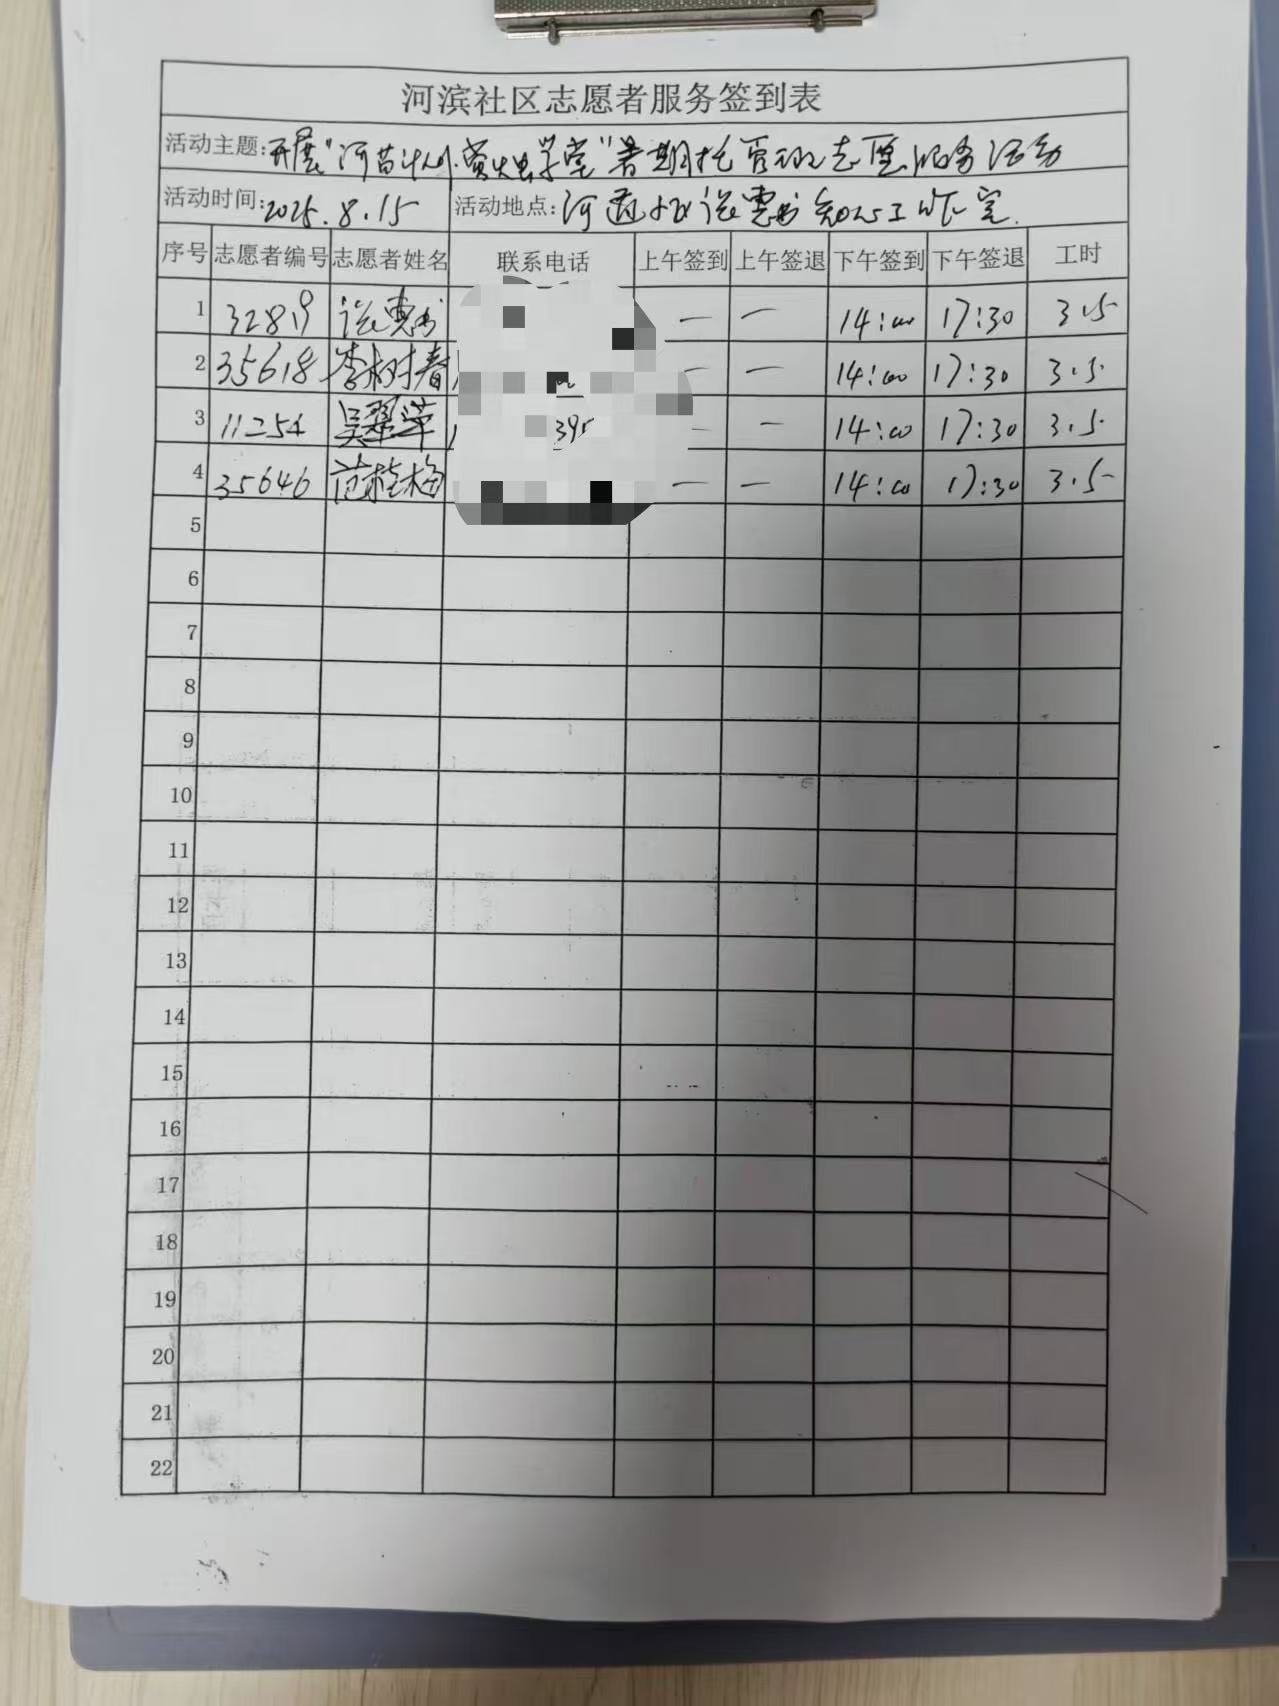 河滨社区志愿者服务签到表
活动主题:开展"河苗计划·萤火虫学堂"暑期托管班志愿服务活动
活动时间:2025.8.15 活动地点:河 工作室.
序号 志愿者编号 志愿者姓名 联系电话 上午签到 上午签退 下午签到 下午签退 工时
1 32819 — — 14:00 17:30 3.5
2 35618 李树春 — — 14:00 17:30 3.5
3 11254 吴翠萍 395 — — 14:00 17:30 3.5
4 35646 范桂梅 — — 14:00 17:30 3.5
5
6
7
8
9
10
11
12
13
14
15
16
17
18
19
20
21
22